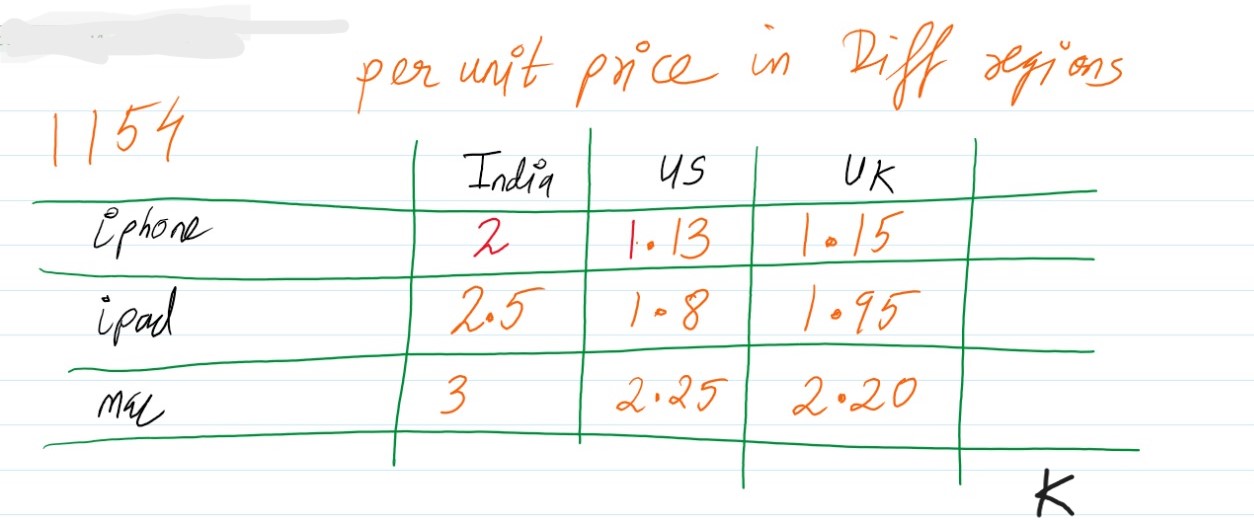 per unit price in Diff regions
1154
India US UK
iphone 2 1.13 1.15
ipad 2.5 1.8 1.95
mac 3 2.25 2.20
K